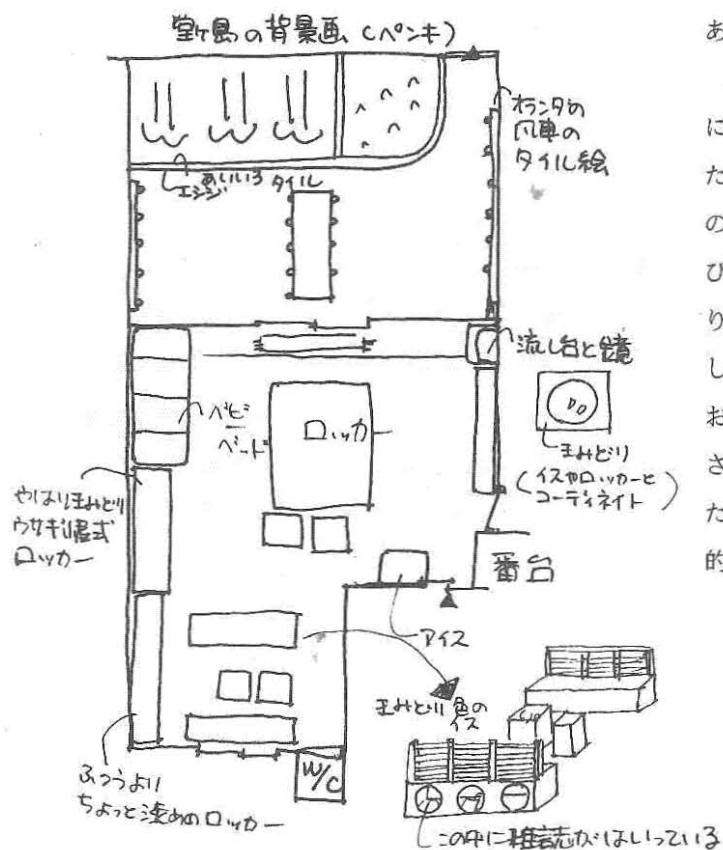 堂ヶ島の背景画(ペンキ)
オランダの
風車の
タイル絵
エンジ
あいいろ
タイル
流し台と鏡
ベビー
ベード
ロッカー
まみどり
(イスやロッカーと
コーディネイト)
やはりまみどり
ウサギ小屋式
ロッカー
番台
アイス
まみどり色の
イス
W/C
ふつうより
ちょっと浅めのロッカー
この中に雑誌がはいっている
あ
に
た
の
び
り
し
お
さ
た
的